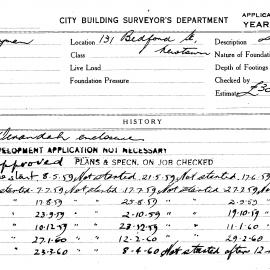 CITY BUILDING SURVEYOR'S DEPARTMENT
APPLICATION
YEAR
Location 131 Bedford St.
Newtown
Class
Nature of Foundation
Live Load
Depth of Footings
Foundation Pressure
Checked by
Estimate £30
HISTORY
Verandah enclosure
DEVELOPMENT APPLICATION NOT NECESSARY
Approved PLANS & SPECN. ON JOB CHECKED
8.5.59 Not started 21.5.59 Not started 17.6.59
started 7.7.59 Not started 17.7.59 Not started 27.7.59 Not
" 17.8.59 " 25.8.59 "
" 23.9.59 " 2.10.59 " 19.10.59
" 10.12.59 " 23.12.59 " 11.1.60
" 27.1.60 " 12.2.60 " 29.2.60
" 23.3.60 " 8.4.60 Not started after 12